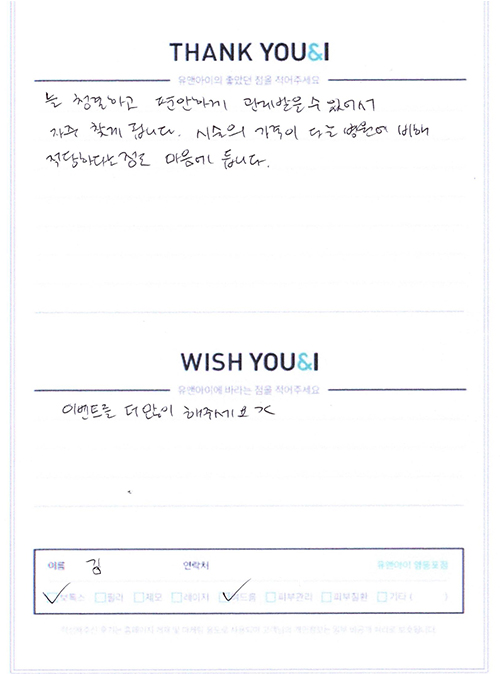 THANK YOU&I
유앤아이의 좋았던 점을 적어주세요
늘 청결하고 편안하게 관리받을 수 있어서
자주 찾게 됩니다. 시술의 가격이 다른 병원에 비해
적당하다는 점도 마음에 듭니다.
WISH YOU&I
유앤아이에 바라는 점을 적어주세요
이벤트를 더 많이 해주세요 ^^
이름 김 연락처 유앤아이 영등포점
보톡스 필러 제모 레이저 여드름 피부관리 피부질환 기타 ( )